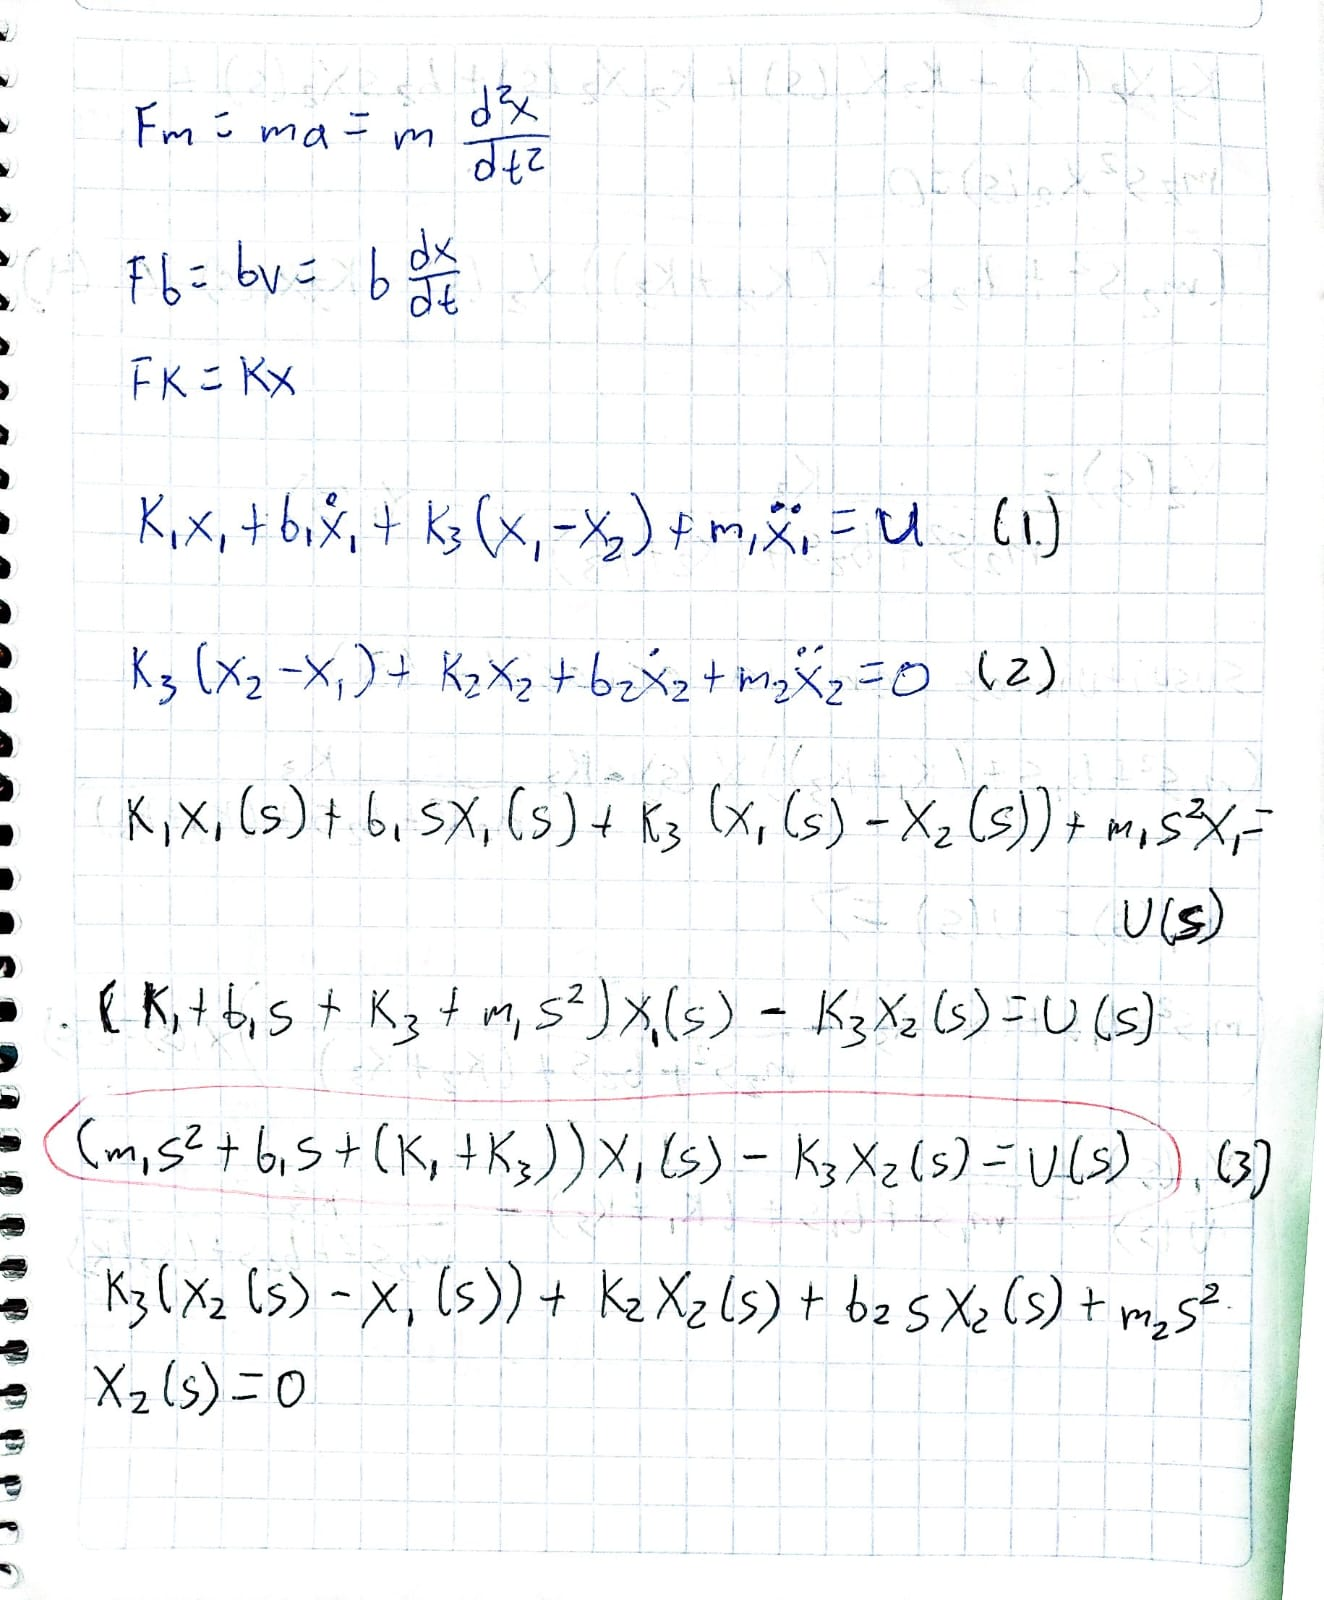 Fm = ma = m d²x/dt²
Fb = bv = b dx/dt
FK = Kx
K₁x₁ + b₁ẋ₁ + K₃(x₁-x₂) + m₁ẍ₁ = U (1.)
K₃(x₂-x₁) + K₂x₂ + b₂ẋ₂ + m₂ẍ₂ = 0 (2)
K₁X₁(s) + b₁sX₁(s) + K₃(X₁(s) - X₂(s)) + m₁s²X₁ =
U(s)
(K₁ + b₁s + K₃ + m₁s²)X₁(s) - K₃X₂(s) = U(s)
(m₁s² + b₁s + (K₁ + K₃))X₁(s) - K₃X₂(s) = U(s) (3)
K₃(X₂(s) - X₁(s)) + K₂X₂(s) + b₂sX₂(s) + m₂s²
X₂(s) = 0